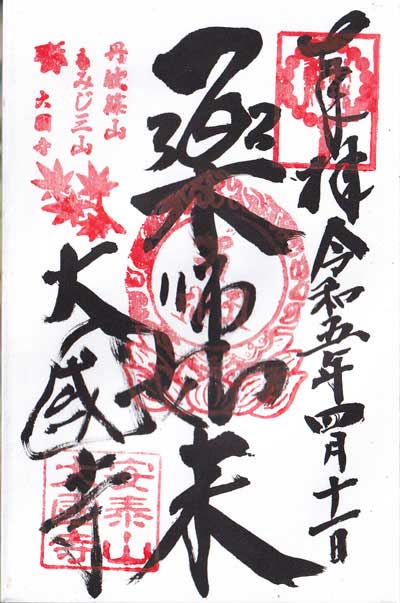 奉拝 令和五年四月十一日
薬師如来
大国寺
丹波篠山
もみじ三山
大國寺
安泰山
大國寺